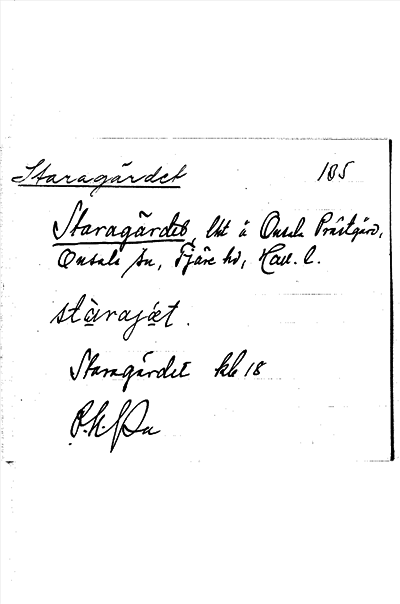 Staragärdet 185
Staragärdet, lht å Onsala Prästgård,
Onsala sn, Fjäre hd, Hall. l.
stàrajæt.
Staragärdet klb 18